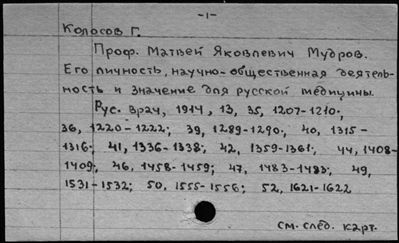 -1-
Колосов Г.
Проф. Матвей Яковлевич Мудров.
Его личность, научно-общественная деятель-
ность и значение для русской медицины.
Рус. врач, 1914, 13, 35, 1207-1210;
36, 1220-1222; 39, 1289-1290; 40, 1315-
1316; 41, 1336-1338; 42, 1359-1361; 44, 1408-
1409; 46, 1458-1459; 47, 1483-1483; 49,
1531-1532; 50, 1555-1556; 52, 1621-1622
см. след. карт.